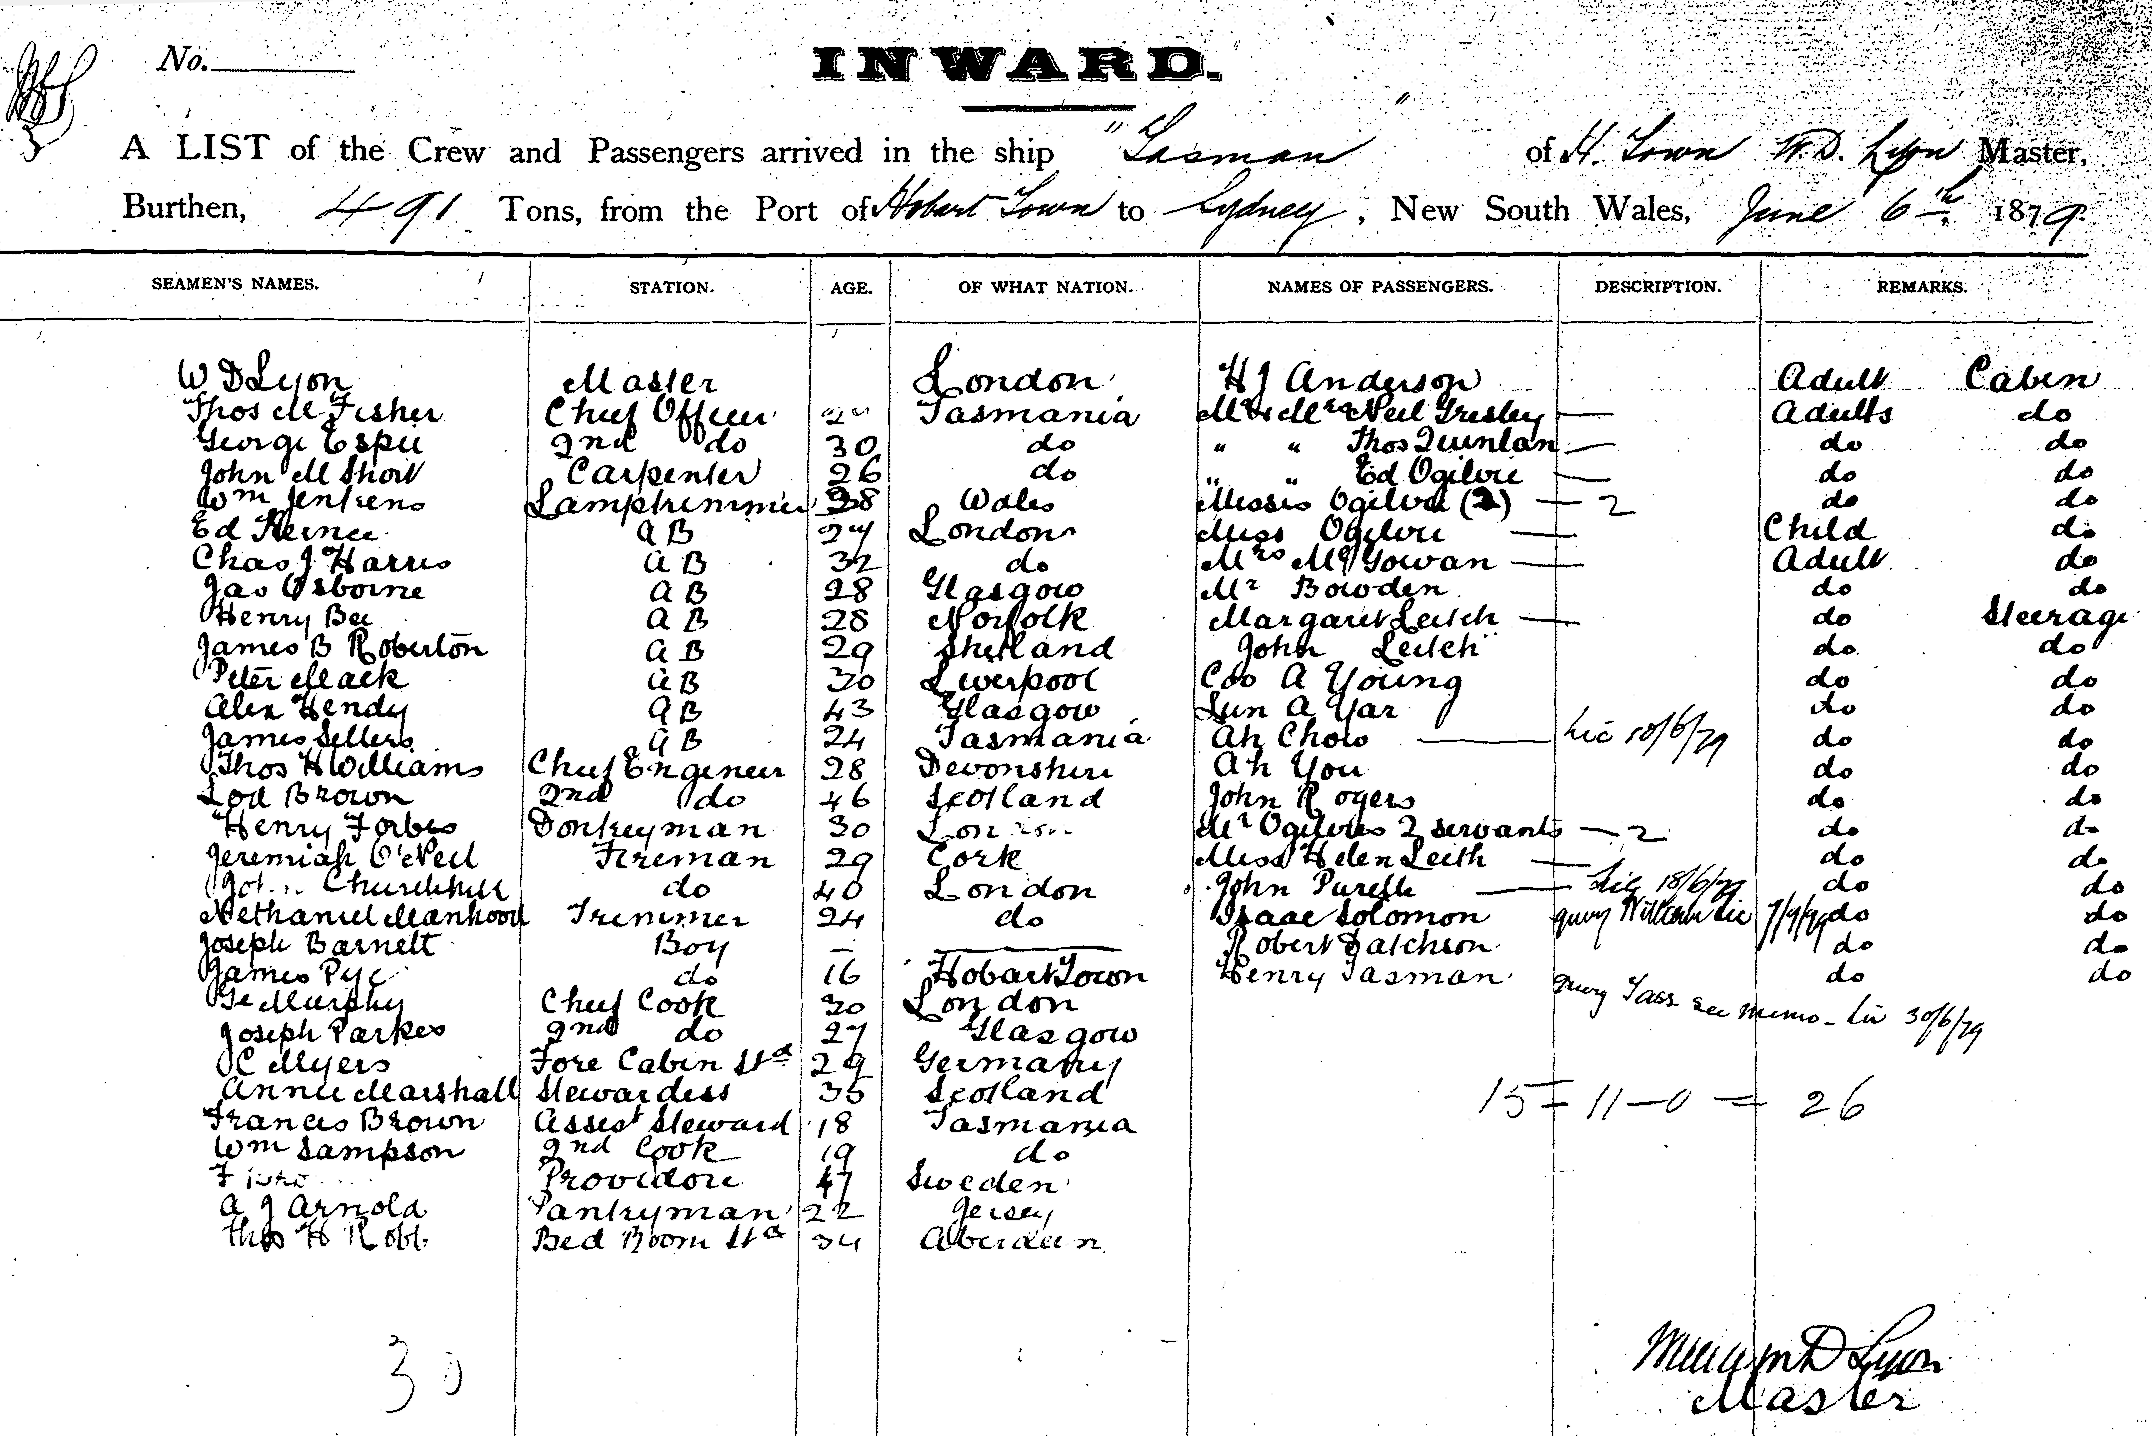 No.
INWARD.
A LIST of the Crew and Passengers arrived in the ship "Tasman" of H. Town W.D. Lyon Master,
Burthen, 491 Tons, from the Port of Hobart Town to Sydney, New South Wales, June 6th 1879.
SEAMEN'S NAMES. STATION. AGE. OF WHAT NATION. NAMES OF PASSENGERS. DESCRIPTION. REMARKS.
W D Lyon Master London H J Anderson Adult Cabin
Thos M Fisher Chief Officer Tasmania Mr & Mrs Neil Gresley — Adults do
George Espie 2nd do 30 do " " Thos Quinlan — do do
John M Short Carpenter 26 do " " Ed Ogilvie — do do
Wm Jenkens Lamptrimmer 38 Wales Misses Ogilvie (2) — 2 do do
Ed 27 London Miss Ogilvie — Child do
Chas J Harris A B 32 do Mrs McGowan — Adult do
Jas Osborne A B 28 Glasgow Mr Bowden do do
Henry Bee A B 28 Norfolk Margaret Leitch — do Steerage
James B Roberton A B 29 Shetland John Leitch do do
Peter Mack A B 30 Liverpool Coo A Young do do
Alex Hendy A B 43 Glasgow Lun A Yar do do
James Sellers A B 24 Tasmania Ah Chow — Lic 10/6/79 do do
Thos H Williams Chief Engineer 28 Devonshire Ah You do do
Lod Brown 2nd do 46 Scotland John Rogers do do
Henry Forbes Donkeyman 30 London Mr Ogilvies 2 servants — 2 do do
Jeremiah O'Neil Fireman 29 Cork Miss Helen Leith — do do
John Churchhill do 40 London John Purelle — Lic 18/6/79 do do
Nethaniel Manhood Trimmer 24 do Isaac Solomon query William Lic 7/9/79 do do
Joseph Barnett Boy — Robert Datchson do do
James Pye do 16 Hobart Town Henry Tasman do do
Ge Murphy Chief Cook 30 London query Tass see memo - Lic 30/6/79
Joseph Parkes 2nd do 27 Glasgow
C Myers Fore Cabin Std 29 Germany
Annie Marshall Stewardess 35 Scotland 15 = 11 — 0 = 26
Frances Brown Assest Steward 18 Tasmania
Wm Sampson 2nd Cook 19 do
Providore 47 Sweden
A J Arnold Pantryman 22 Jersey
Thos H Robb Bed Room Std 34 Aberdeen
30
D Lyon
Master